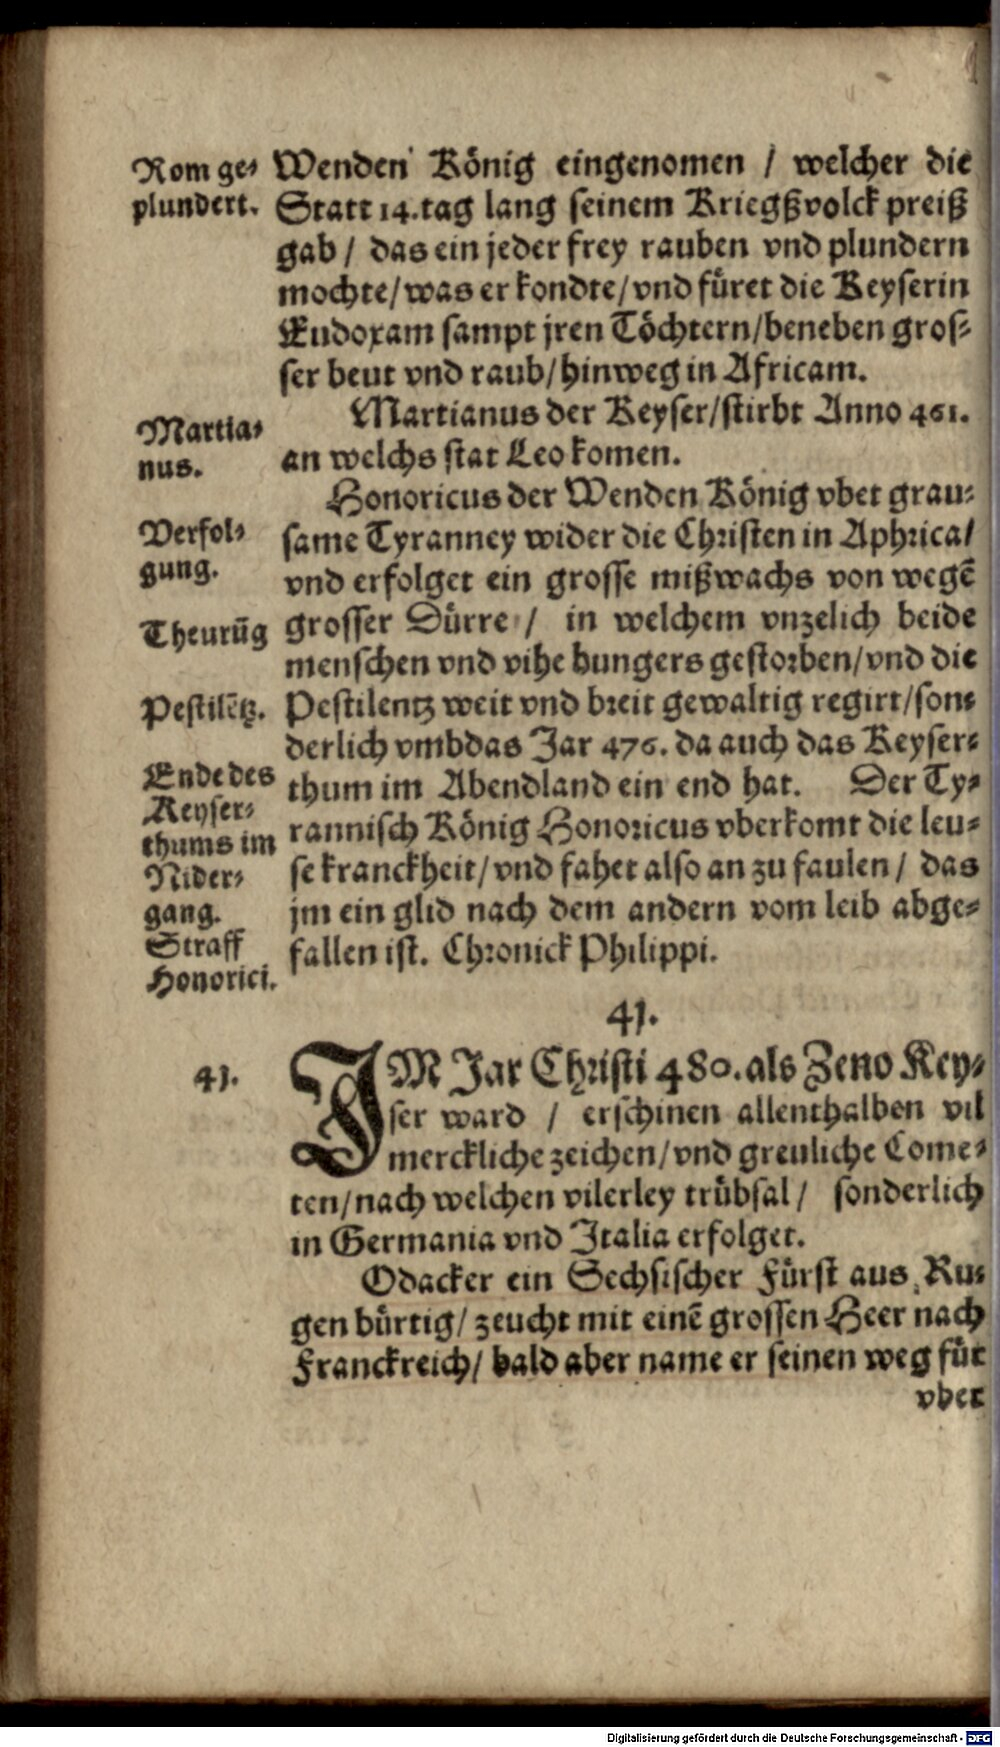 Rom ge⸗
plundert.
Wenden König eingenomen / welcher die
Statt 14. tag lang seinem Kriegßvolck preiß
gab / das ein jeder frey rauben vnd plundern
mochte / was er kondte / vnd füret die Keyserin
Eudoxam sampt jren Töchtern / beneben gros⸗
ser beut vnd raub / hinweg in Africam.
Martia⸗
nus.
Martianus der Keyser / stirbt Anno 461.
an welchs stat Leo komen.
Verfol⸗
gung.
Honoricus der Wenden König vbet grau⸗
same Tyranney wider die Christen in Aphrica /
vnd erfolget ein grosse mißwachs von wegē
Theurūg
grosser Dürre / in welchem vnzelich beide
menschen vnd vihe hungers gestorben / vnd die
Pestilētz.
Pestilentz weit vnd breit gewaltig regirt / son⸗
derlich vmbdas Jar 476. da auch das Keyser⸗
Ende des
Keyser⸗
thums im
Nider⸗
gang.
thum im Abendland ein end hat. Der Ty⸗
rannisch König Honoricus vberkomt die leu⸗
se kranckheit / vnd fahet also an zu faulen / das
jm ein glid nach dem andern vom leib abge⸗
Straff
Honorici.
fallen ist. Chronick Philippi.
41.
41.
IM Jar Christi 480. als Zeno Key⸗
ser ward / erschinen allenthalben vil
merckliche zeichen / vnd greuliche Come⸗
ten / nach welchen vilerley trübsal / sonderlich
in Germania vnd Italia erfolget.
Odacker ein Sechsischer Fürst aus Ru⸗
gen bürtig / zeucht mit einē grossen Heer nach
Franckreich / bald aber name er seinen weg für
vber
Digitalisierung gefördert durch die Deutsche Forschungsgemeinschaft - DFG